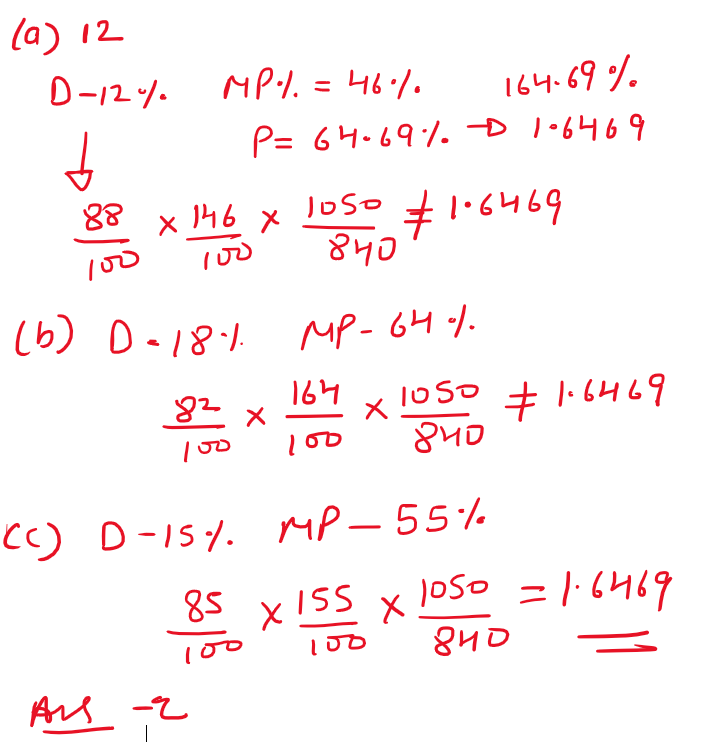 (a) 12
D-12% MP% = 46% 164.69%
P= 64.69% → 1.6469
88/100 × 146/100 × 1050/840 ≠ 1.6469
(b) D-18% MP- 64%
82/100 × 164/100 × 1050/840 ≠ 1.6469
(c) D-15% MP-55%
85/100 × 155/100 × 1050/840 = 1.6469
Ans -2